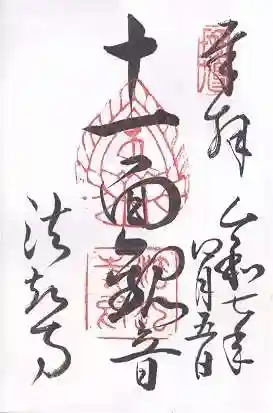 奉拝
令和七年
四月五日
十一面観音
法起寺